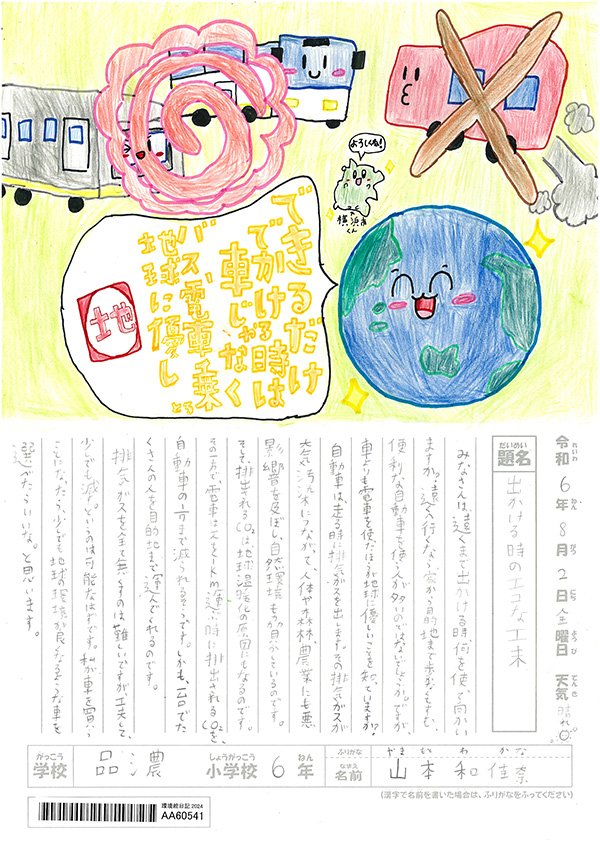 よろしくね!
横浜市
くん
できるだけ
でかける時は
車じゃなく
バス、電車乗
とろ
地球に優し
地
令和6年8月2日金曜日 天気 晴れ
れいわ ねん がつ にち ようび てんき
だいめい
題名
出かける時のエコな工夫
みなさんは、遠くまで出かける時、何を使い、向かい
ますか?遠くへ行くなら、家から目的地まで歩かなくてすむ、
便利な自動車を使う人が多いのではないでしょうか。ですが、
車よりも電車を使たほうが地球に優しいことを知ていますか?
自動車は、走る時に排気ガスを出します。その排気ガスが
大気汚染につながって、人体や森林、農業にも悪
影響を及ぼし、自然環境も脅かしているのです。
そして排出されるCO₂は地球温暖化の原因にもなるのです。
その一方で、電車は人を1km運ぶ時に排出されるCO₂を、
自動車の まで減らせるそうです。しかも、一台でた
くさんの人を目的地まで運んでくれるのです。
排気ガスを全て無くすのは難しいですが、工夫して、
少しでも減らしていくのは可能なはずです。私が車を買う
ことになったら、少しでも地球の環境が良くなるような車を
選べたらいいな。と思います。
がっこう しょうがっこう ねん
学校 品濃 小学校 6年
ふりがな やまもと わかな
なまえ
名前 山本 和佳奈
(漢字で名前を書いた場合は、ふりがなをふってください)
環境絵日記2024
AA60541